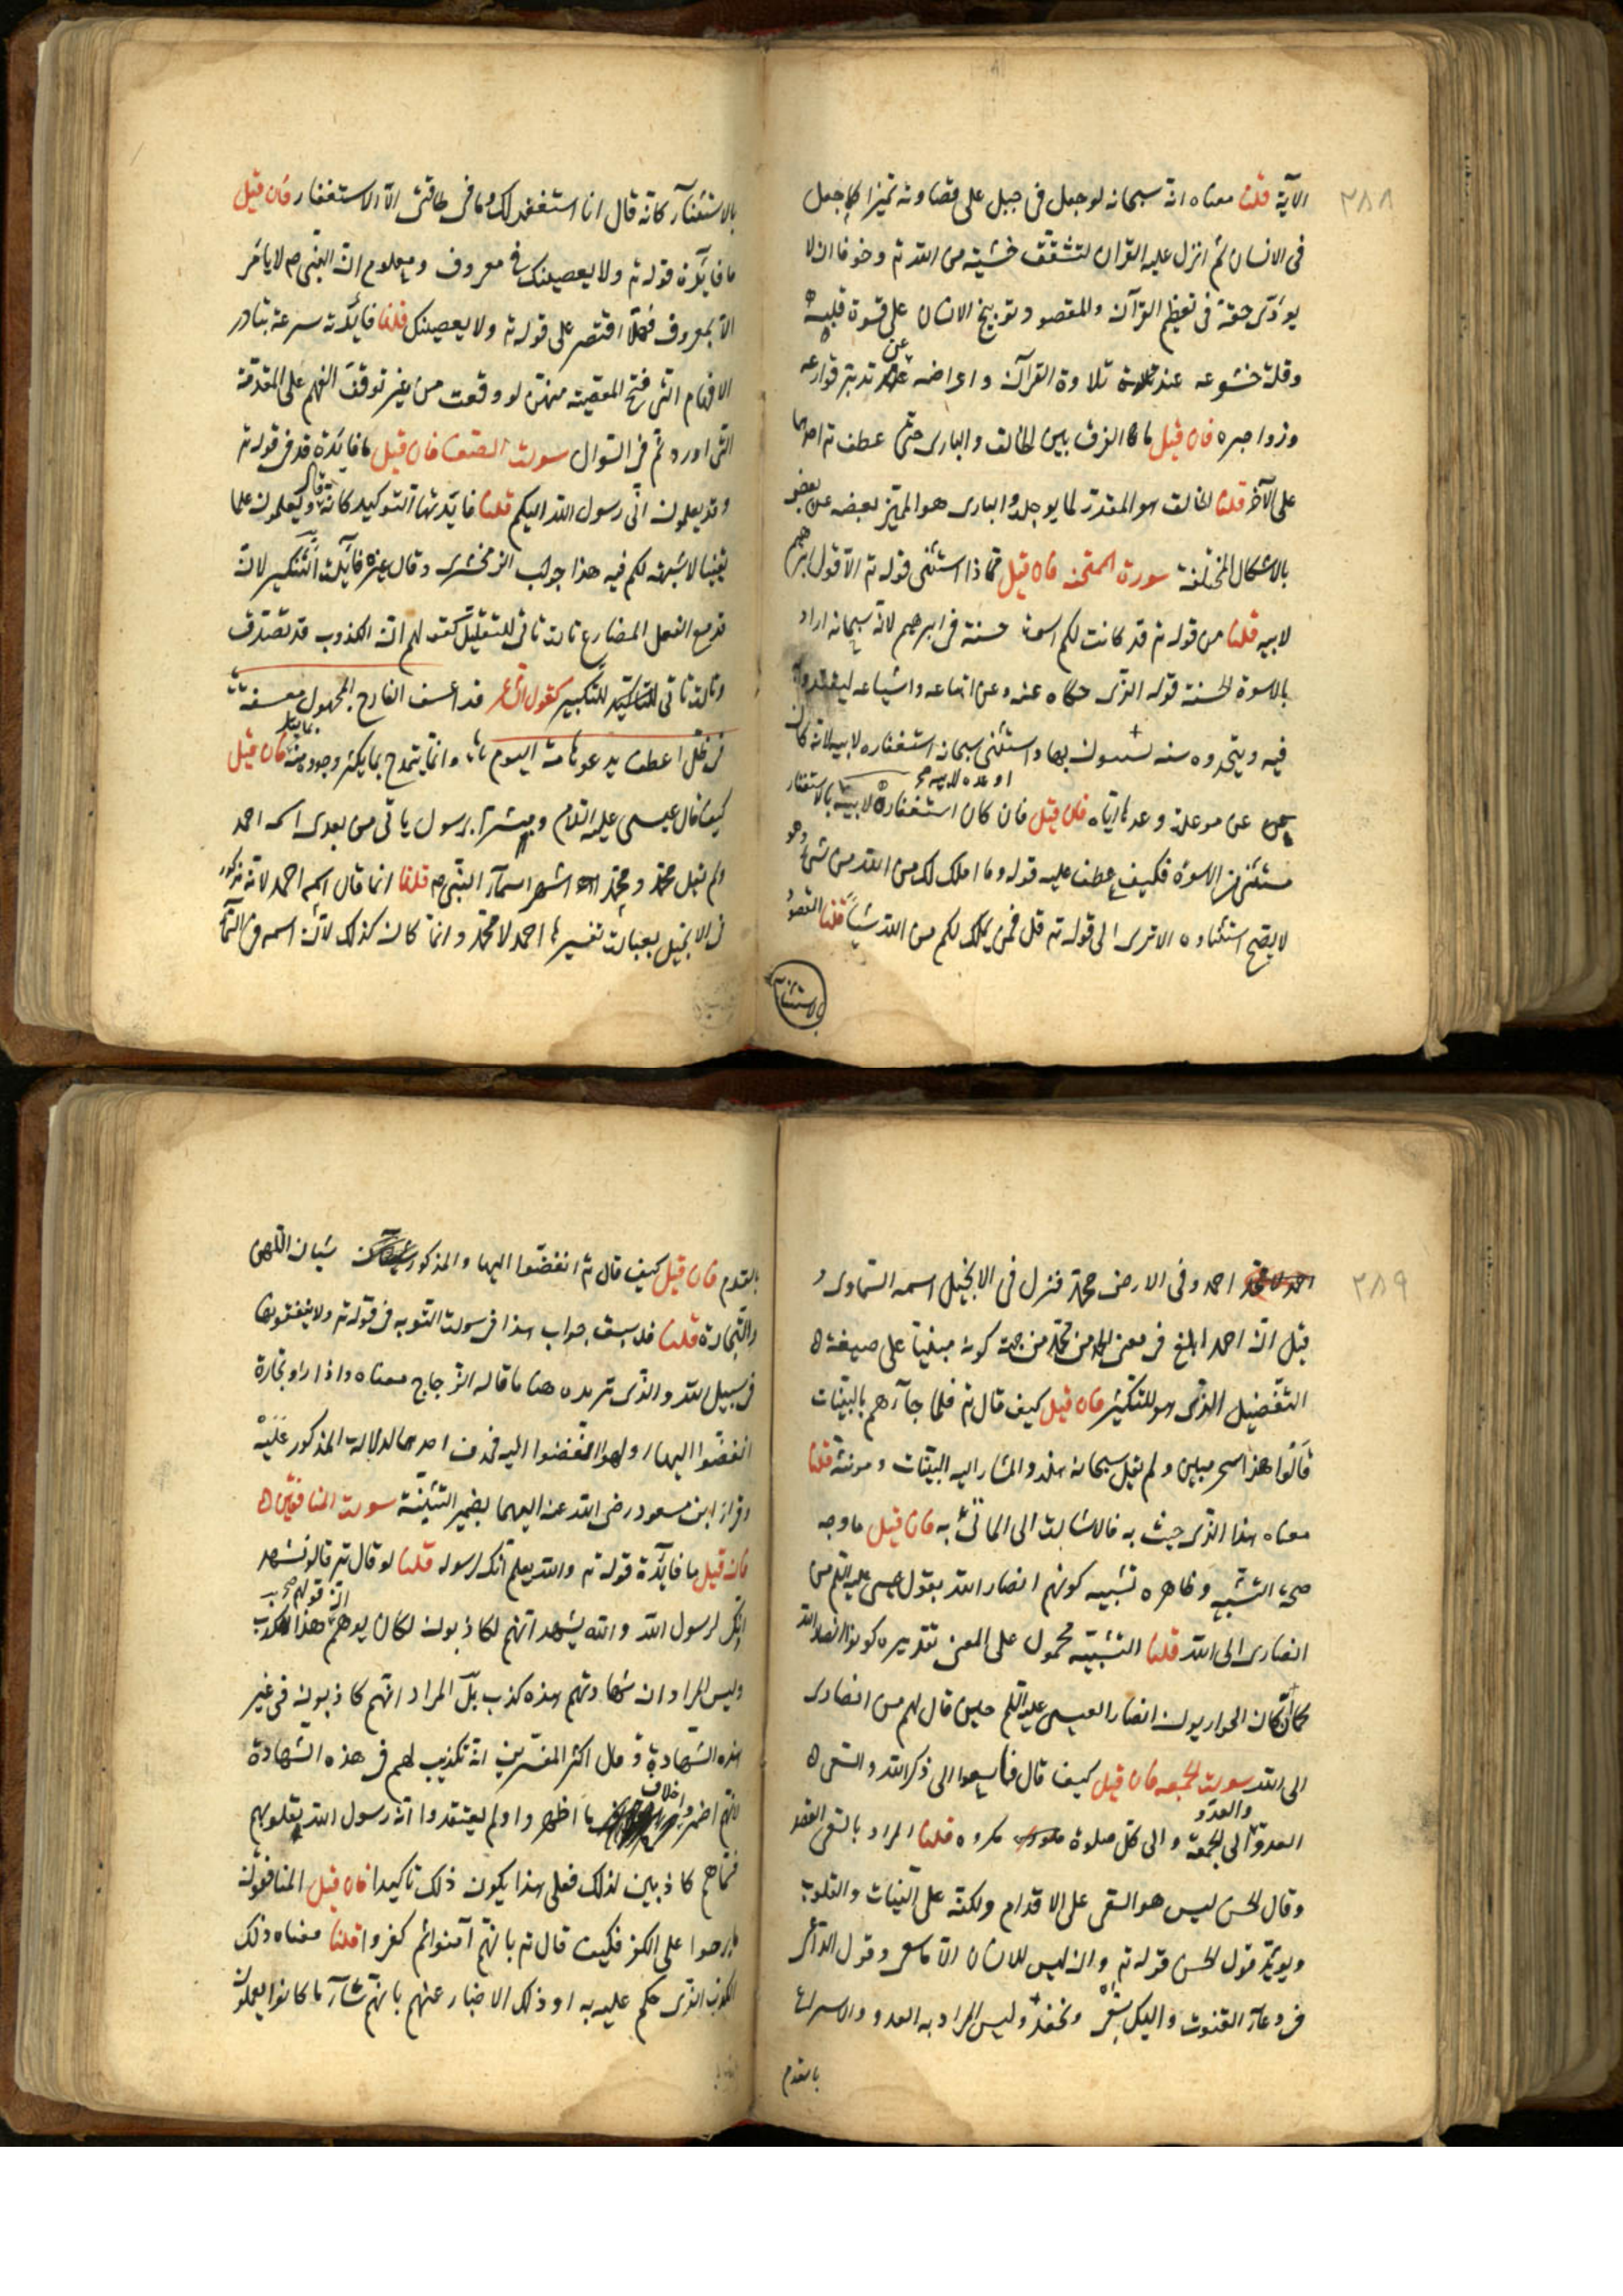 ٢٨٨
الآية قلنا معناه انه سبحانه لوجعل فى جبل على قساوته تميزا كما جعل
فى الانسان ثم انزل عليه القران لتشقق خشية من الله تع وخوفا ان لا
يؤدى حقه فى تعظيم القرآن والمقصود توبيخ الانسان على قسوة قلبه
وقلة خشوعه عند تلاوة القرآن واعراضه عن تدبر قوارعه
وزواجره فان قيل ما الفرق بين الخالق والبارى حتى عطف تع احدهما
على الآخر قلنا الخالق هو المقدر لما يوجده والبارى هو المميز بعضه عن بعض
بالاشكال المختلفة سورة الممتحنه فان قيل مماذا استثنى قوله تع الا قول ابرهيم
لابيه قلنا من قوله تع قد كانت لكم اسوة حسنة فى ابرهيم لانه سبحانه اراد
بالاسوة الحسنة قوله الذى حكاه عنه وعن اتباعه واشياعه ليقتدوا
فيه ويتخذوه سنه يستنون بها واستثنى سبحانه استغفاره لابيه لانه كان
عن موعدة وعدها اياه فان قيل فان كان استغفاره لابيه او وعده لابيه بالاستغفار
مستثنى من الاسوة فكيف عطف عليه قوله وما املك لك من الله من شئ وهو
لا يصح استثناوه الا ترى الى قوله تع قل فمن يملك لكم من الله شيئا قلنا المقصود
بالاستثنآء
بالاستثنآء كانه قال انا استغفر لك وما فى طاقتى الا الاستغفار فان قيل
ما فايدة قوله تع ولا يعصينك فى معروف ومعلوم ان النبى ص لا يامر
الا بمعروف فهلا اقتصر على قوله تع ولا يعصينك قلنا فايدته سرعة تبادر
الافهام الى قبح المعصية منهن لو وقعت من غير توقف الفهم على المقدمة
التى اورده تم فى السوال سورت الصف فان قيل ما فايدة قد فى قوله تع
وقد يعلمون انى رسول الله اليكم قلنا فايدتها التوكيد كانه قال وتعلمون علما
يقينا لا شبهة لكم فيه هذا جواب الزمخشرى وقال غيره فايدتها التكثير لان
قد مع الفعل المضارع تارت تاتى للتقليل كقولهم ان الكذوب قد تصدق
وتارت تاتى للتكثير كقول الشاعر قد اعسف النازح المجهول معسفه
فى ظل اعطف يدعو هامه البوم وانما يتمدح بما يكثر وجوده منه فان قيل
كيف قال عيسى عليه السلام ومبشرا برسول ياتى من بعدى اسمه احمد
ولم يقل محمد ومحمد اشهر اسمآء النبى ص قلنا انما قال اسمه احمد لانه مذكور
فى الانجيل بعبارت تفسيرها احمد لا محمد وانما كان كذلك لان اسمه فى السمآء
٢٨٩
احمد وفى الارض محمد فنزل فى الانجيل اسمه السماوى و
قيل ان احمد ابلغ فى معنى الحمد من محمد من جهة كونه مبنيا على صيغة
التفضيل الذى هو للتكثير فان قيل كيف قال تع فلما جآءهم بالبينات
قالوا هذا سحر مبين ولم يقل سبحانه هذه والمشار اليه البينات ومونثه قلنا
معناه هذا الذى جيت به فالاشارت الى الماتى به فان قيل ما وجه
صحة التشبيه وظاهره تشبيه كونهم انصار الله بقول عيسى عليه السلم من
انصارى الى الله قلنا التشبيه محمول على المعنى تقديره كونوا انصار الله
كما كان الحواريون انصارا لعيسى عليه السلم حين قال لهم من انصارى
الى الله سورت الجمعه فان قيل كيف قال فاسعوا الى ذكر الله والسعى
العدو والعدو الى الجمعة والى كل صلوة مكروه قلنا المراد بالسعى القصد
وقال الحسن ليس هو السعى على الاقدام ولكنه على النيات والقلوب
ويويد قول الحسن قوله تع وان ليس للانسان الا ما سعى وقول الداعى
فى دعآء القنوت واليك نسعى ونحفد وليس المراد به العدو والاسراع
بالقدم
بالقدم فان قيل كيف قال تع انفضوا اليها والمذكور شيآن اللهو
والتجارة قلنا قد سبق جواب هذا فى سورت التوبه فى قوله تع ولا ينفقونها
فى سبيل الله والذى نريده هنا ما قاله الزجاج معناه واذا راو تجارة
انفضوا اليها او لهوا انفضوا اليه فحذف احدهما لدلالة المذكور عليه
وقراءة ابن مسعود رضى الله عنه اليهما بضمير التثنية سورت المنافقين
فان قيل ما فايدة قوله تع والله يعلم انك لرسوله قلنا لو قال تع قالوا نشهد
انك لرسول الله والله يشهد انهم لكاذبون لكان يوهم ان قولهم هذا كذب
وليس المراد ان شهادتهم هذه كذب بل المراد انهم كاذبون فى غير
هذه الشهادة وقال اكثر المفسرين انه تكذيب لهم فى هذه الشهادة
لانهم اضمروا خلاف ما اظهروا ولم يعتقدوا انه رسول الله بقلوبهم
فسماهم كاذبين لذلك فعلى هذا يكون ذلك تاكيدا فان قيل المنافقون
ما برحوا على الكفر فكيف قال تع بانهم آمنوا ثم كفروا قلنا معناه ذلك
الكذب الذى حكم عليهم به او ذلك الاخبار عنهم بانهم سآء ما كانوا يعملون